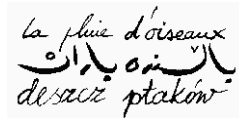 la pluie d'oiseaux
باران
deszcz ptaków